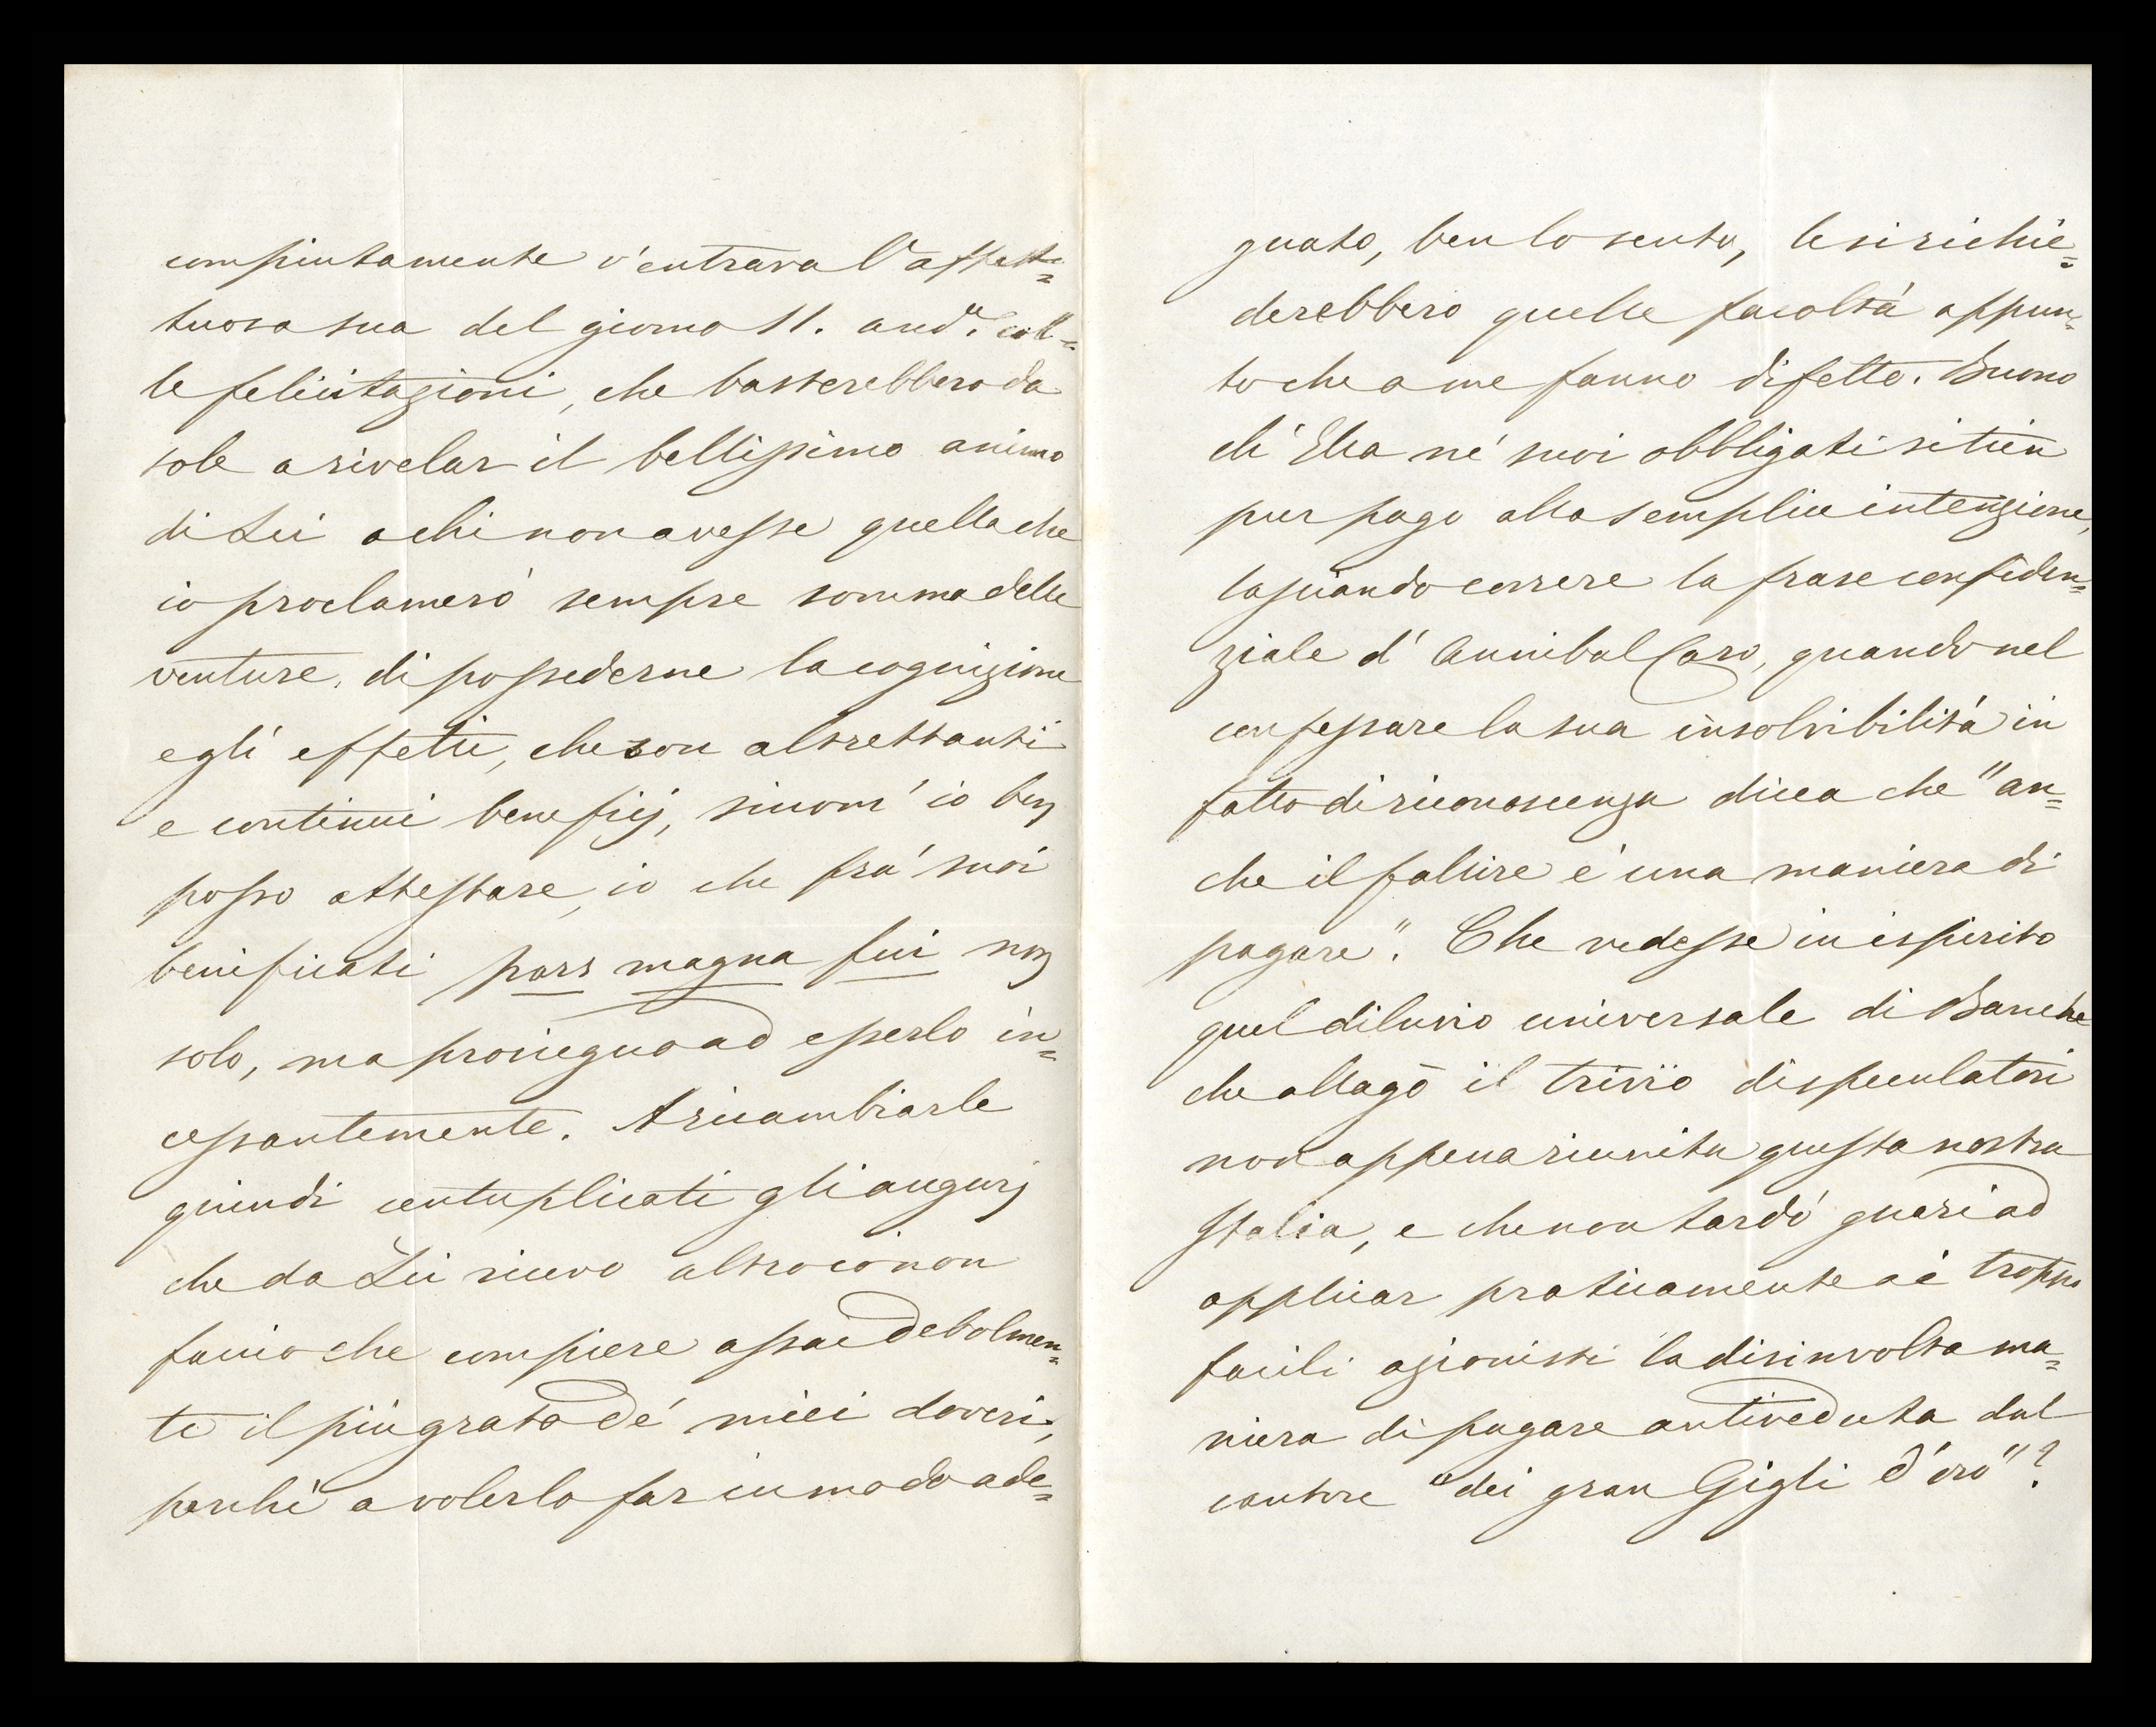 compiutamente v'entrava l'affet=
tuosa sua del giorno 11. and.e col=
le felicitazioni, che basterebbero da
sole a rivelar il bellissimo animo
di Lei a chi non avesse quella che
io proclamerò sempre somma delle
venture, di possederne la cognizione
e gli effetti, che son altrettanti
e continui beneficj, siccom' io ben
posso attestare, io che fra' suoi
beneficati pars magna fui non
solo, ma proseguo ad esserlo in=
cessantemente. A ricambiarle
quindi centuplicati gli augurj
che da Lei ricevo altro io non
faccio che compiere assai debolmen=
te il più grato de' miei doveri,
perché a volerlo far in modo ade=
guato, ben lo sento, le si richie=
derebbero quelle facoltà appun=
to che a me fanno difetto. Buono
ch' Ella ne' suoi obbligati si tien
pur pago alla semplice intenzione,
lasciando correre la frase confiden=
ziale d' Annibal Caro, quando nel
confessare la sua insolvibilità in
fatto di riconoscenza dicea che "an=
che il fallire è una maniera di
pagare". Che vedesse in ispirito
quel diluvio universale di Banche
che allagò il trivio di speculatori
non appena riunita questa nostra
Italia, e che non tardò guari ad
applicar praticamente ai troppo
facili azionisti la disinvolta ma=
niera di pagare antiveduta dal
cantore "dei gran Gigli d'oro"?